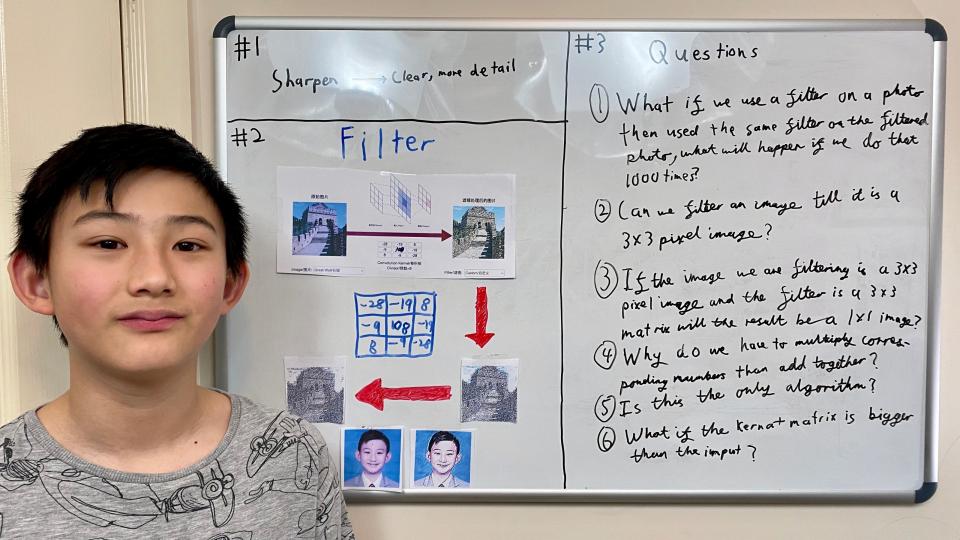 #1
Sharpen → Clear, more detail
#2
Filter
原始图片
滤镜处理后的图片
-28 -19 8
-9 108 -19
8 -9 -28
#3
Questions
① What if we use a filter on a photo
then used the same filter on the filtered
photo, what will happen if we do that
1000 times?
② Can we filter an image till it is a
3x3 pixel image?
③ If the image we are filtering is a 3x3
pixel image and the filter is a 3x3
matrix will the result be a 1x1 image?
④ Why do we have to multiply corres-
ponding numbers than add together?
⑤ Is this the only algorithm?
⑥ What if the kernal matrix is bigger
than the imput?